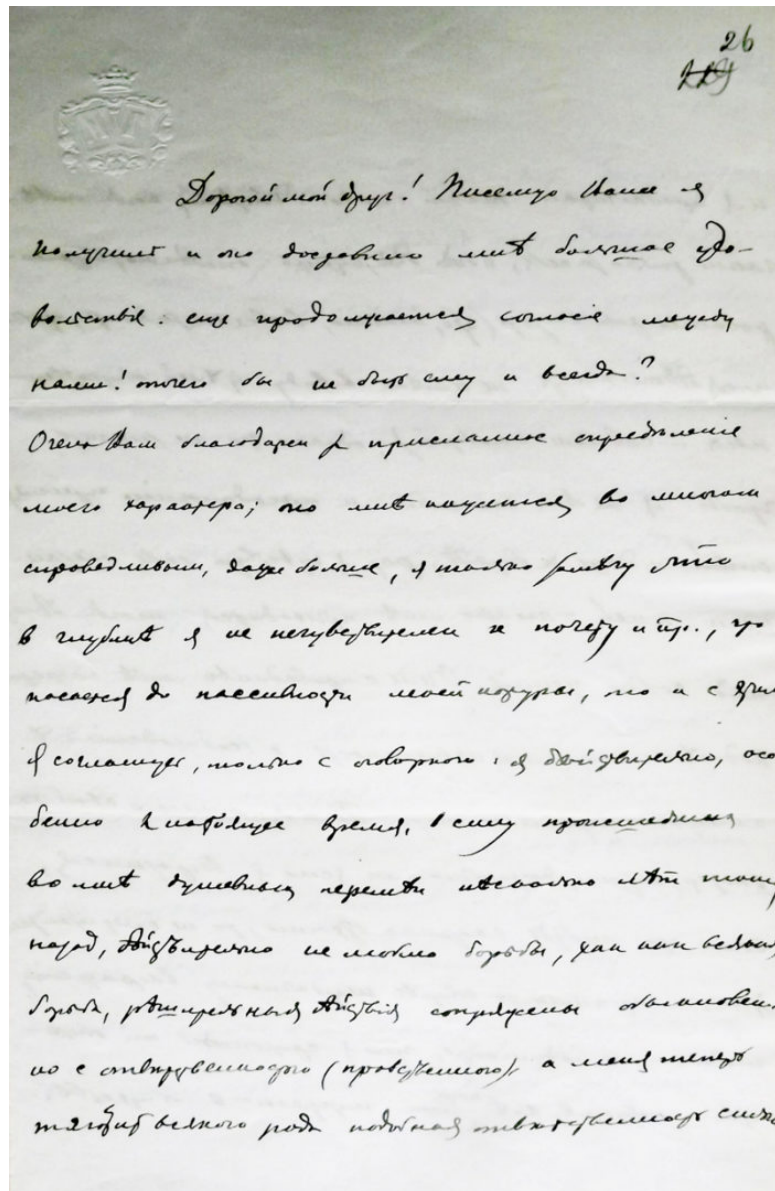 26
Дорогой мой друг! Письмо Ваше я
получилъ и оно доставило мнѣ большое удо-
вольствіе: еще продолжается согласіе между
нами! отчего бы не быть ему и всегда?
Очень Вам благодарен за присланное опредѣленіе
моего характера; оно мнѣ кажется во многом
справедливым, даже больше, я только замѣчу что
в глубинѣ я не нечувствителен к почету и пр., что
касается до пассивности моей натуры, то и с этим
я согласился, только с оговоркою: я дѣйствительно, осо
бенно в настоящее время, в силу происшедших
во мнѣ душевных перемѣн нѣсколько лѣт тому
назад, дѣйствительно не люблю борьбы, так как всякая
борьба, рѣшительныя дѣйствія сопряжены обыкновен
но с отвѣтственностью (нравственною), а меня теперь
тяготит всякого рода подобная отвѣтственность